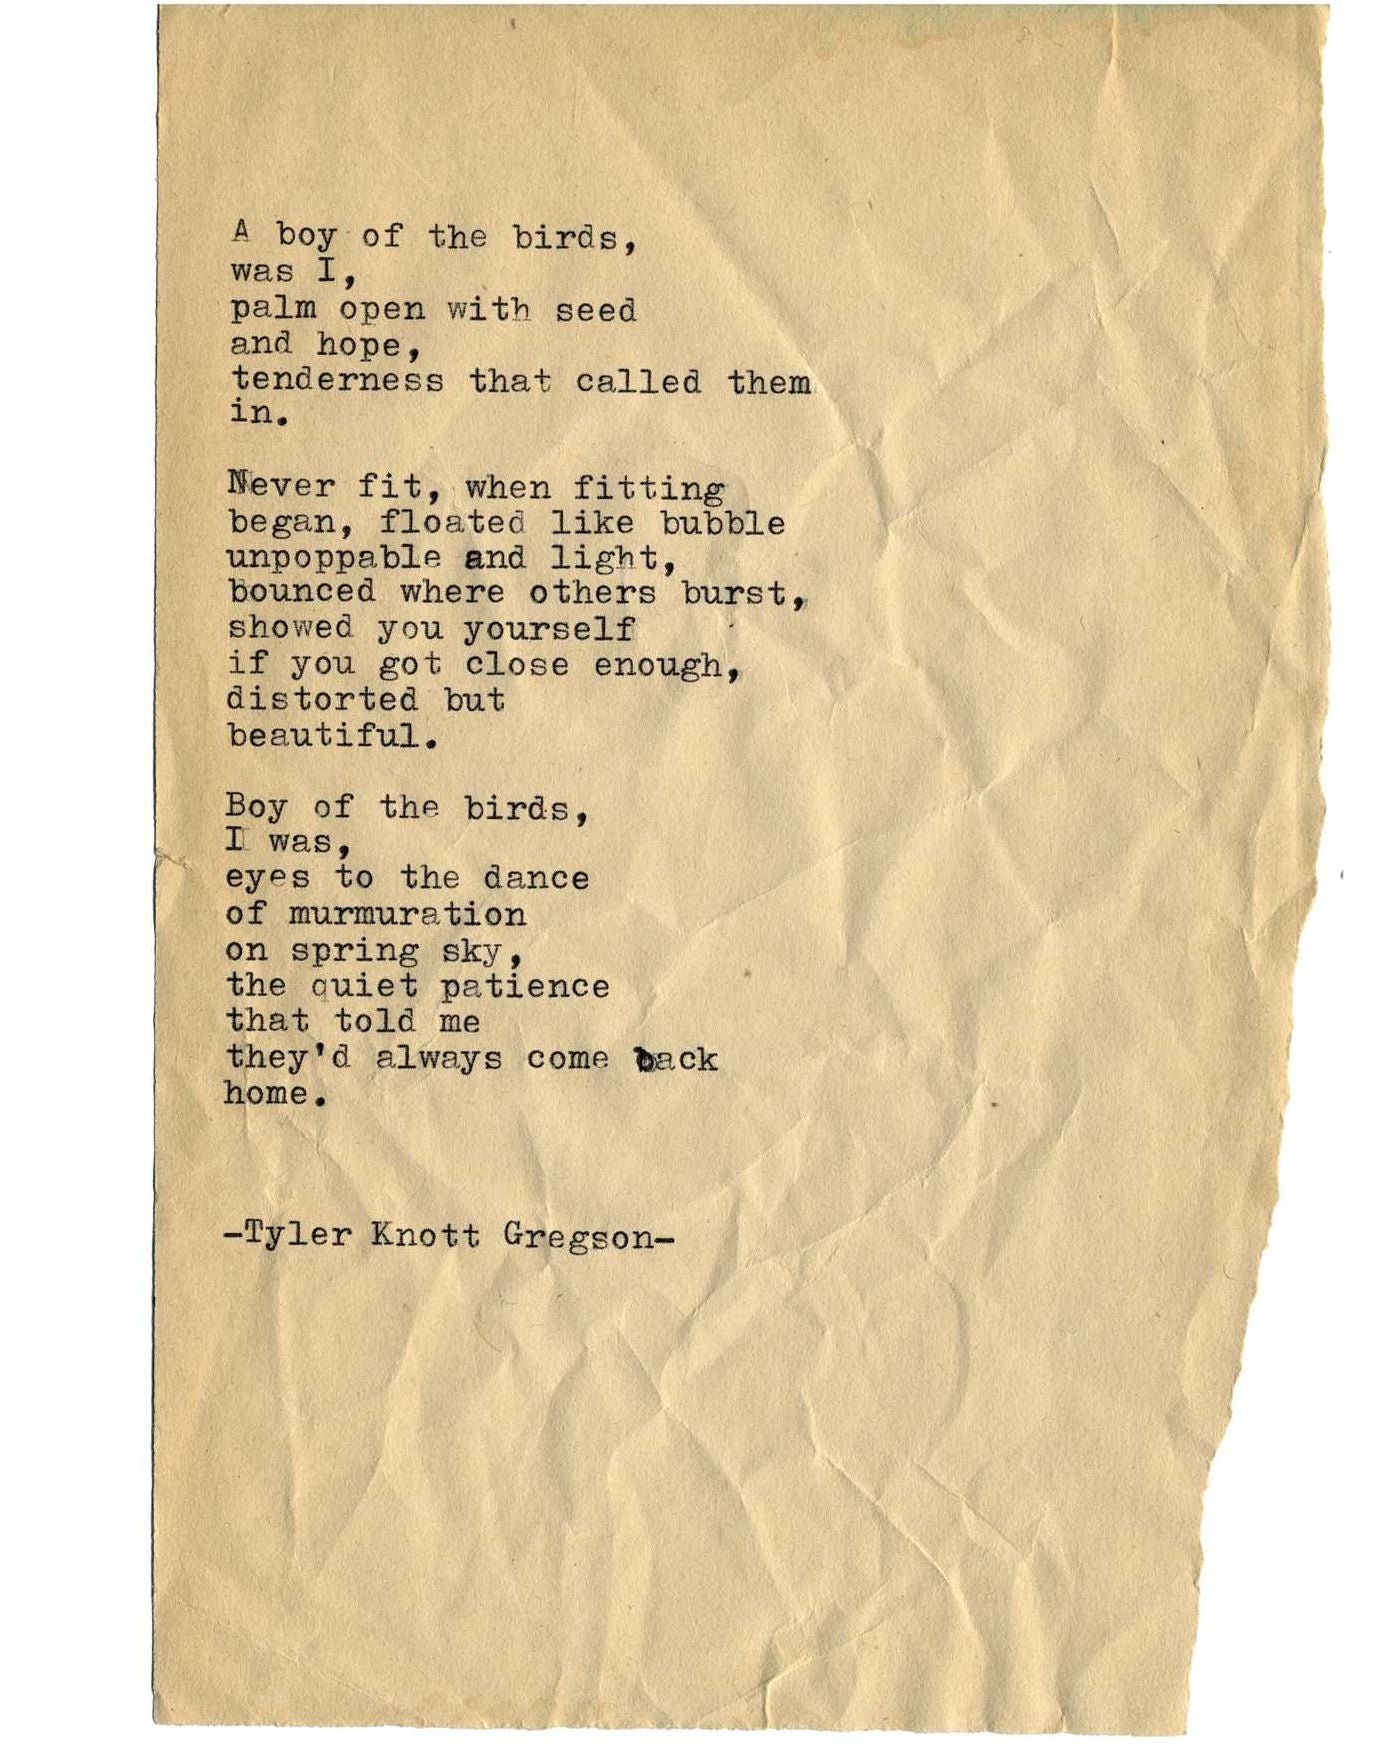 A boy of the birds,
was I,
palm open with seed
and hope,
tenderness that called them
in.
Never fit, when fitting
began, floated like bubble
unpoppable and light,
bounced where others burst,
showed you yourself
if you got close enough,
distorted but
beautiful.
Boy of the birds,
I was,
eyes to the dance
of murmuration
on spring sky,
the quiet patience
that told me
they'd always come back
home.
-Tyler Knott Gregson-